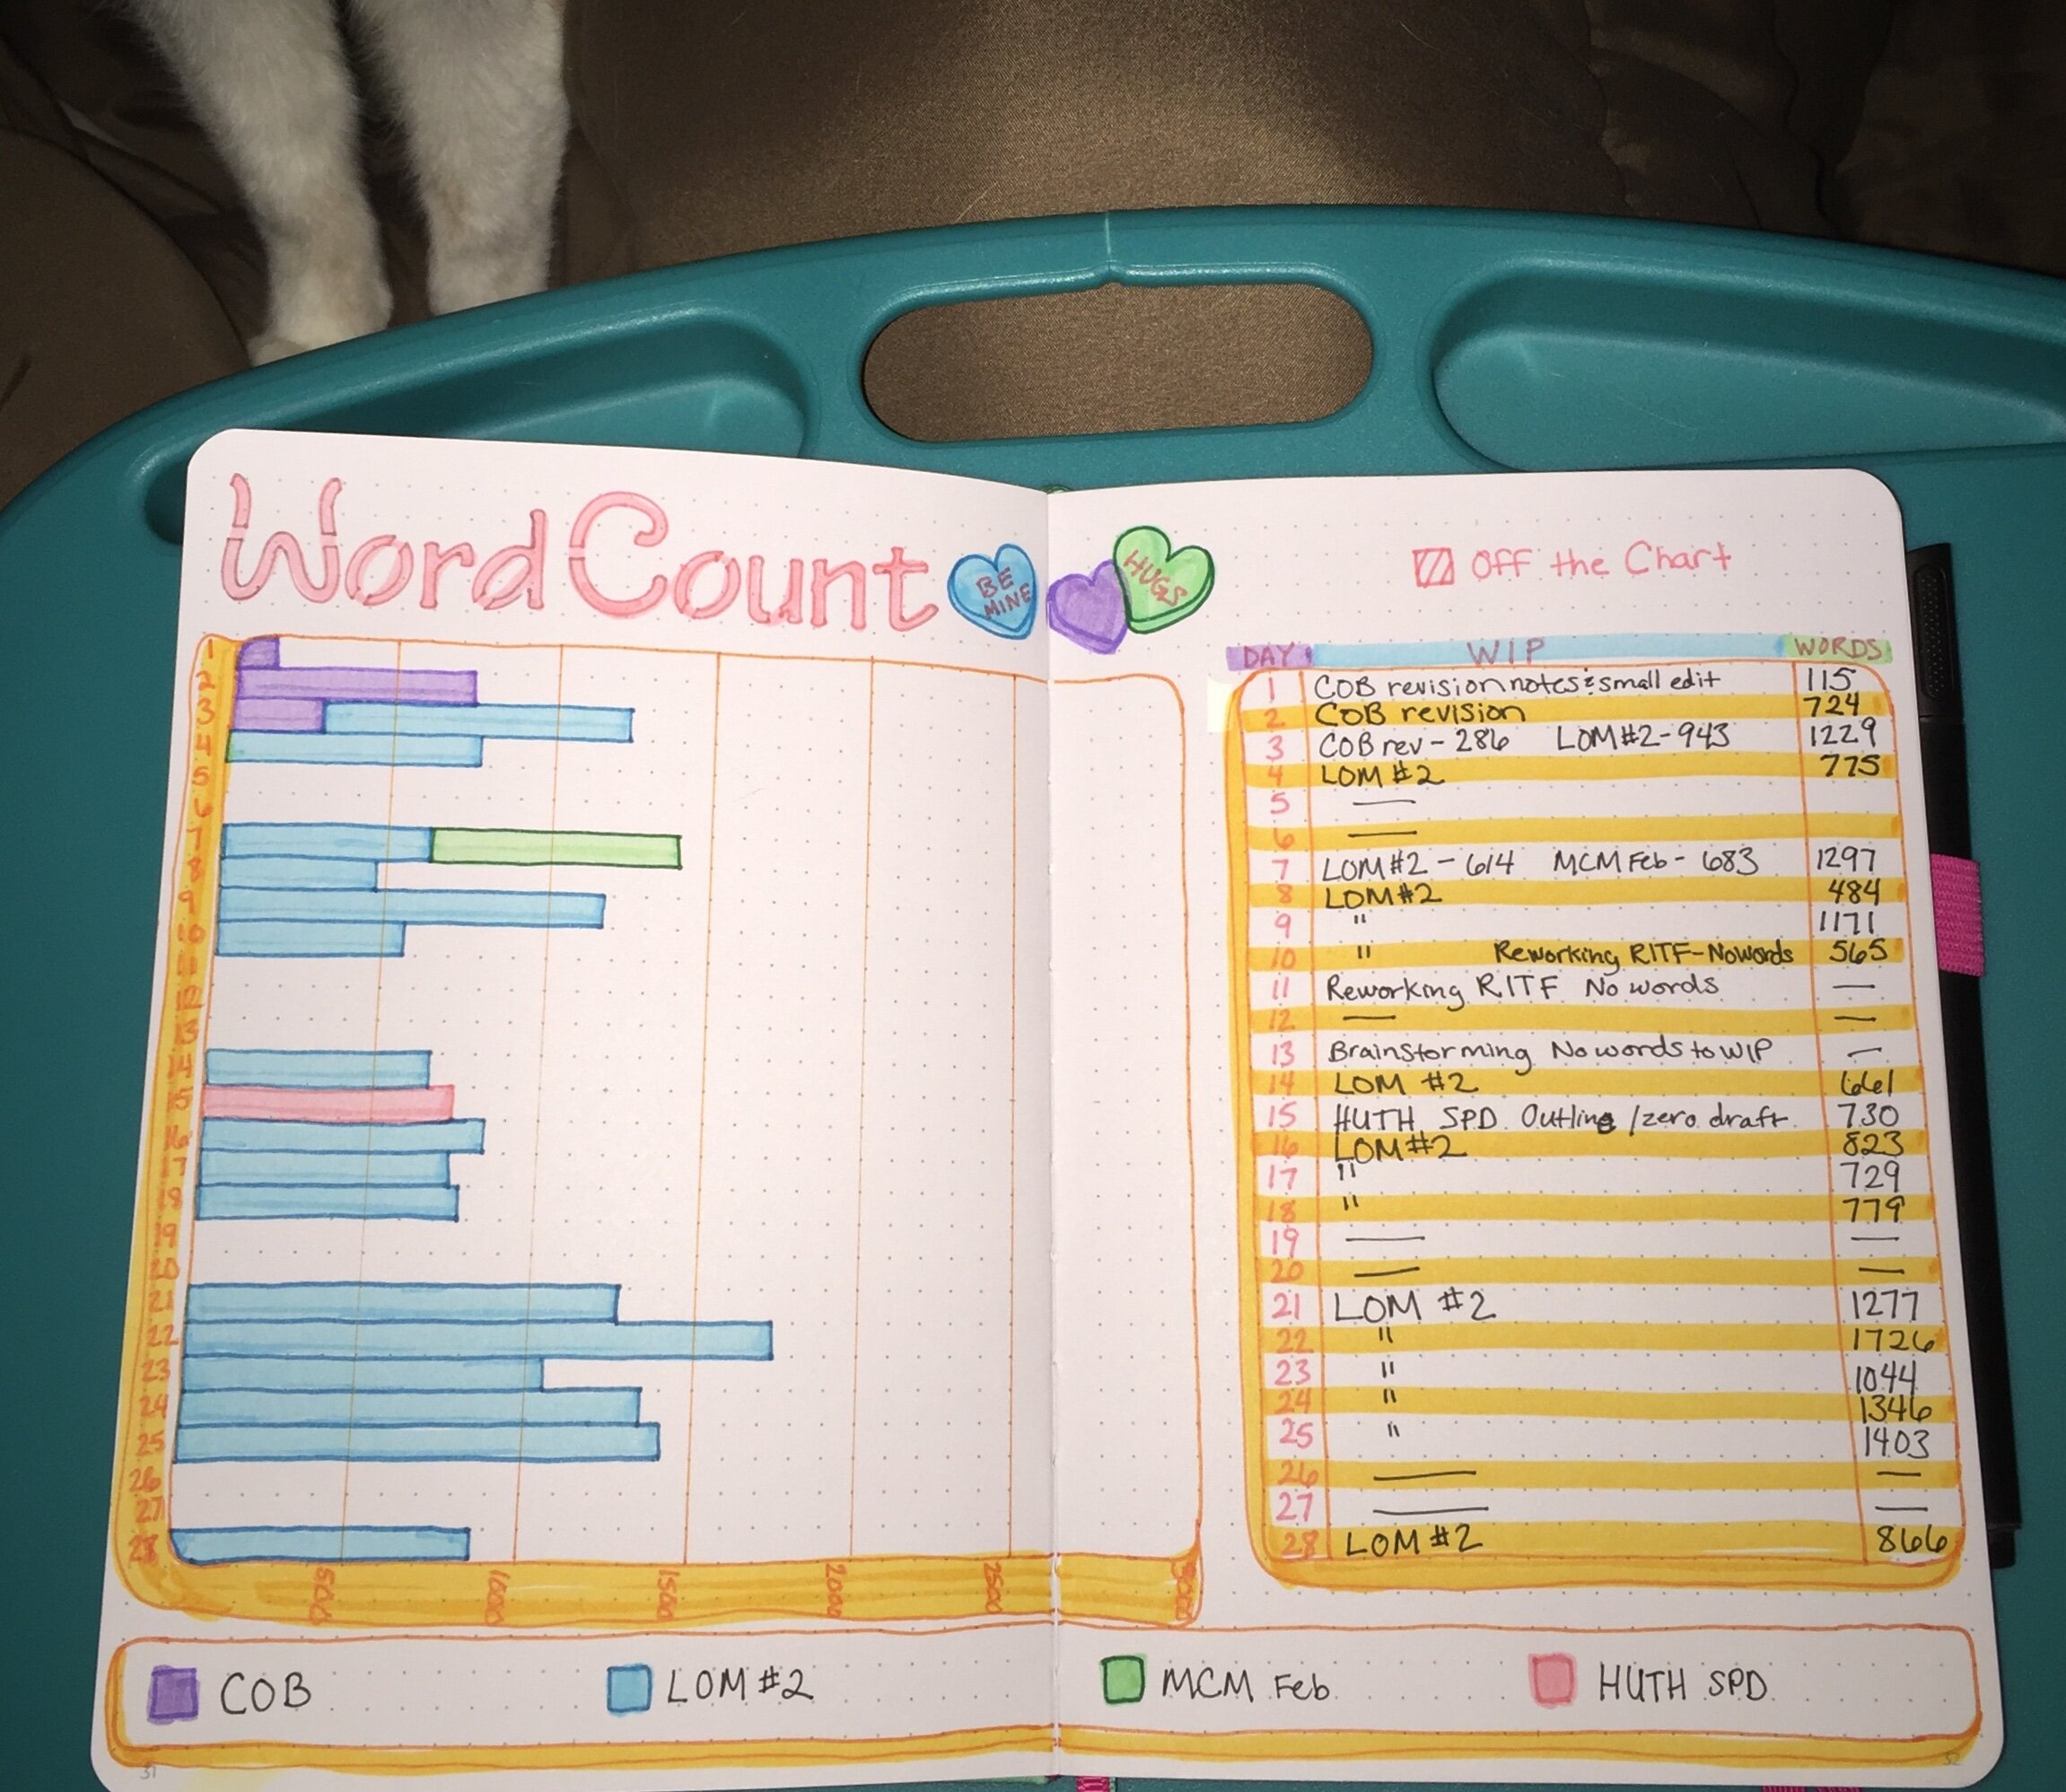 Word Count
BE
MINE
HUGS
Off the Chart
1
2
3
4
5
6
7
8
9
10
11
12
13
14
15
16
17
18
19
20
21
22
23
24
25
26
27
28
500
1000
1500
2000
2500
3000
DAY WIP WORDS
1 COB revision notes & small edit 115
2 COB revision 724
3 COB rev - 286 LOM #2 - 943 1229
4 LOM #2 775
5 —
6 —
7 LOM #2 - 614 MCM Feb - 683 1297
8 LOM #2 484
9 " 1171
10 " Reworking RITF - No words 565
11 Reworking RITF No words —
12 — —
13 Brainstorming No words to WIP —
14 LOM #2 661
15 HUTH SPD Outline / zero draft 730
16 LOM #2 823
17 " 729
18 " 779
19 — —
20 — —
21 LOM #2 1277
22 " 1726
23 " 1044
24 " 1346
25 " 1403
26 — —
27 — —
28 LOM #2 866
COB LOM #2 MCM Feb HUTH SPD
31
32